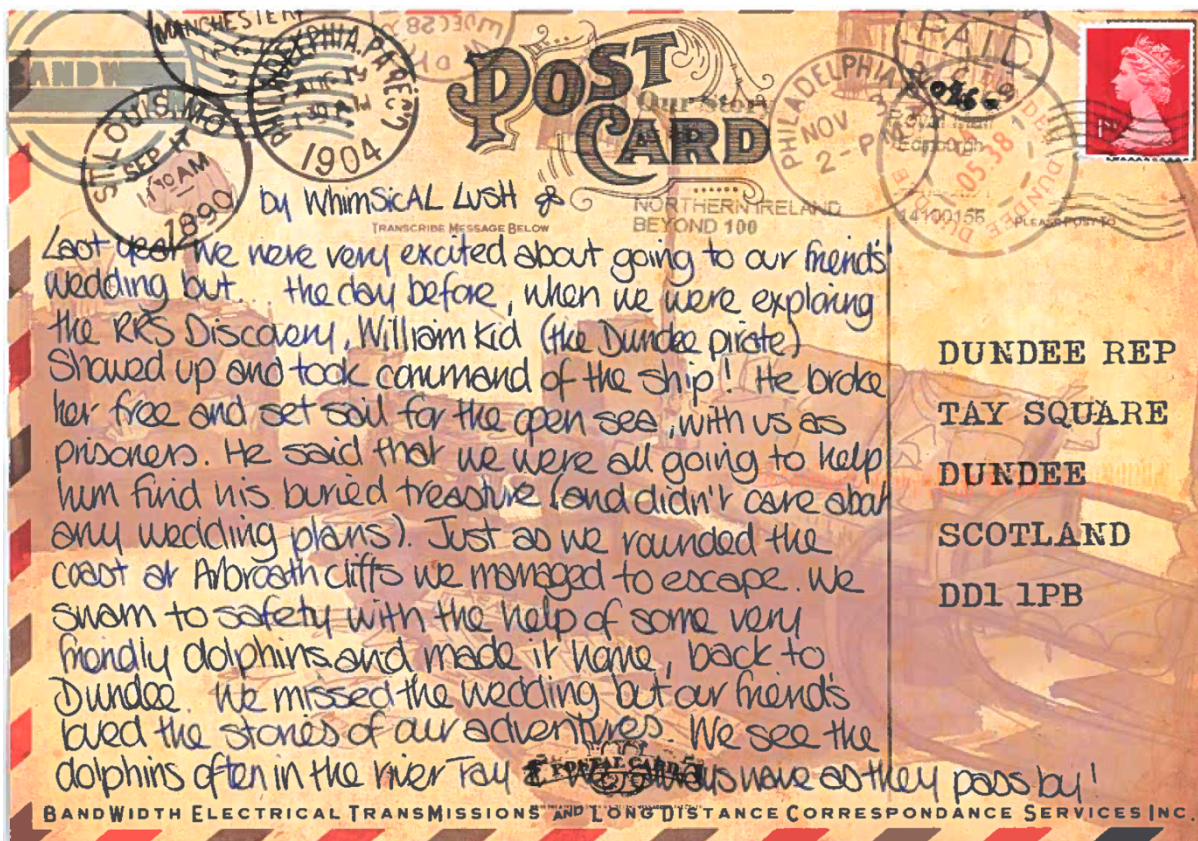 MANCHESTER
BANDWIDTH
PHILADELPHIA, PA
1904
ST LOUIS, MO
SEP 17
11 30 AM
1890
DEC 28
POST
CARD
Our Story
PHILADELPHIA
NOV 3
2 - PM
PAID
Edinburgh
DUNDEE
05.38
1
14100156
PLEASE POST TO
NORTHERN IRELAND
BEYOND 100
by WhimSicAL LusH &
TRANSCRIBE MESSAGE BELOW
Last year we were very excited about going to our friends'
wedding but... the day before, when we were exploring
the RRS Discovery, William Kid (the Dundee pirate)
Showed up and took command of the ship! He broke
her free and set sail for the open sea, with us as
prisoners. He said that we were all going to help
him find his buried treasure (and didn't care about
any wedding plans). Just as we rounded the
coast at Arbroath cliffs we managed to escape. We
swam to safety with the help of some very
friendly dolphins and made it home, back to
Dundee. We missed the wedding but our friend's
loved the stories of our adventures. We see the
dolphins often in the river Tay & we always wave as they pass by!
POSTAL CARD
DUNDEE REP
TAY SQUARE
DUNDEE
SCOTLAND
DD1 1PB
BANDWIDTH ELECTRICAL TRANSMISSIONS AND LONG DISTANCE CORRESPONDANCE SERVICES INC.